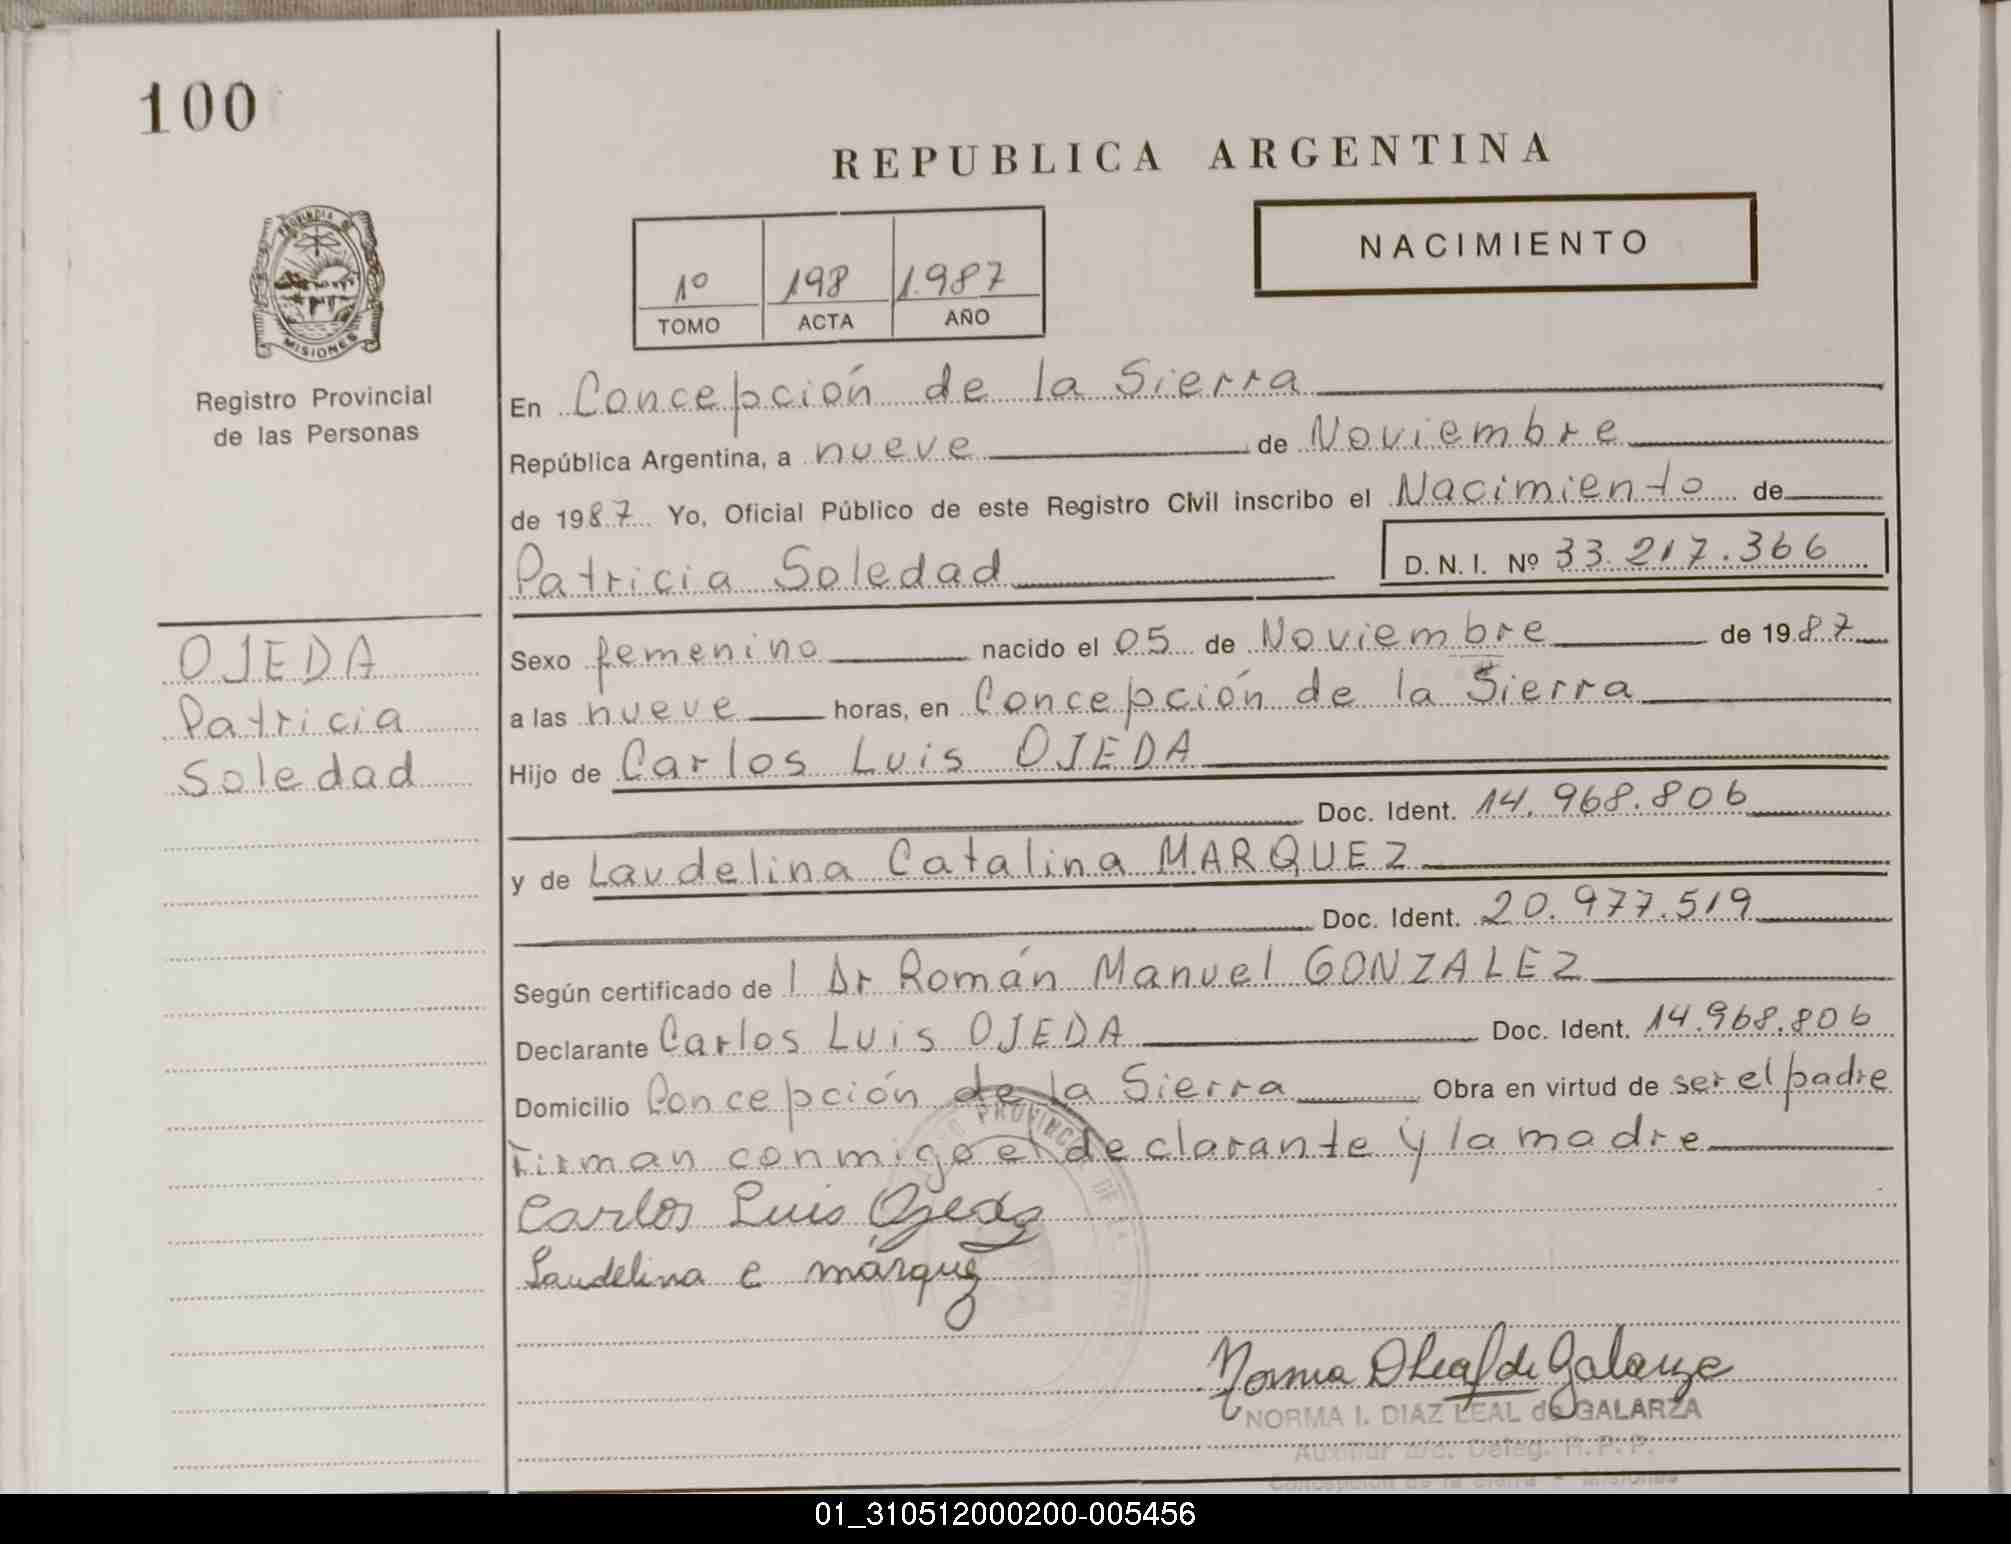 100
REPUBLICA ARGENTINA
NACIMIENTO
1º 198 1.987
TOMO ACTA AÑO
PROVINCIA DE
MISIONES
Registro Provincial
de las Personas
En Concepción de la Sierra
República Argentina, a nueve de Noviembre
de 1987 Yo, Oficial Público de este Registro Civil inscribo el Nacimiento de
Patricia Soledad D.N.I. Nº 33.217.366
OJEDA
Patricia
Soledad
Sexo femenino nacido el 05 de Noviembre de 1987
a las nueve horas, en Concepción de la Sierra
Hijo de Carlos Luis OJEDA
Doc. Ident. 14.968.806
y de Laudelina Catalina MARQUEZ
Doc. Ident. 20.977.519
Según certificado de l Dr Román Manuel GONZALEZ
Declarante Carlos Luis OJEDA Doc. Ident. 14.968.806
Domicilio Concepción de la Sierra Obra en virtud de ser el padre
Firman conmigo el declarante y la madre
Carlos Luis Ojeda
Laudelina C márquez
Norma D Leal de Galarza
NORMA I. DIAZ LEAL de GALARZA
Auxiliar a/c. Deleg. R.P.P.
Concepción de la Sierra - Misiones
01_310512000200-005456